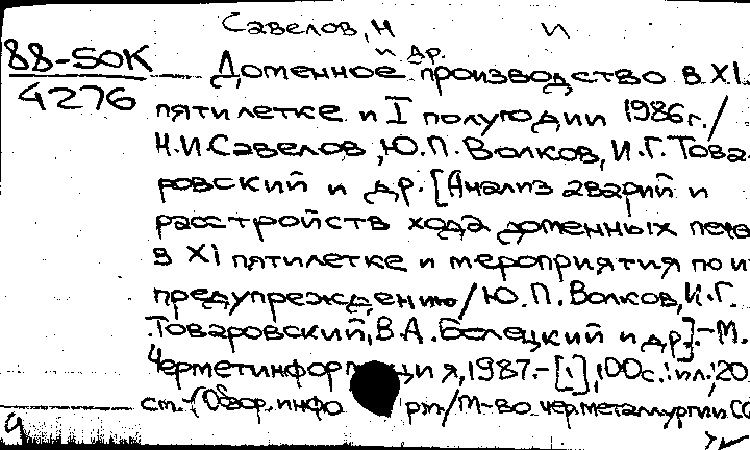 Савелов, Н
и др.
88-SOK
4276
Доменное производство в XI
пятилетке и I полугодии 1986г./
Н.И.Савелов, Ю.П.Волков, И.Г.Това
ровский и др. [Анализ аварий и
расстройств хода доменных пече
в XI пятилетке и мероприятия по и
предупреждению/Ю.П.Волков, И.Г.
Товаровский, В.А.Белецкий и др].-М.
Черметинформ ци я, 1987.-[1], 100с.:ил.; 20
ст.-(Обзор.инфо рм/М-во чер.металлургии СС
9